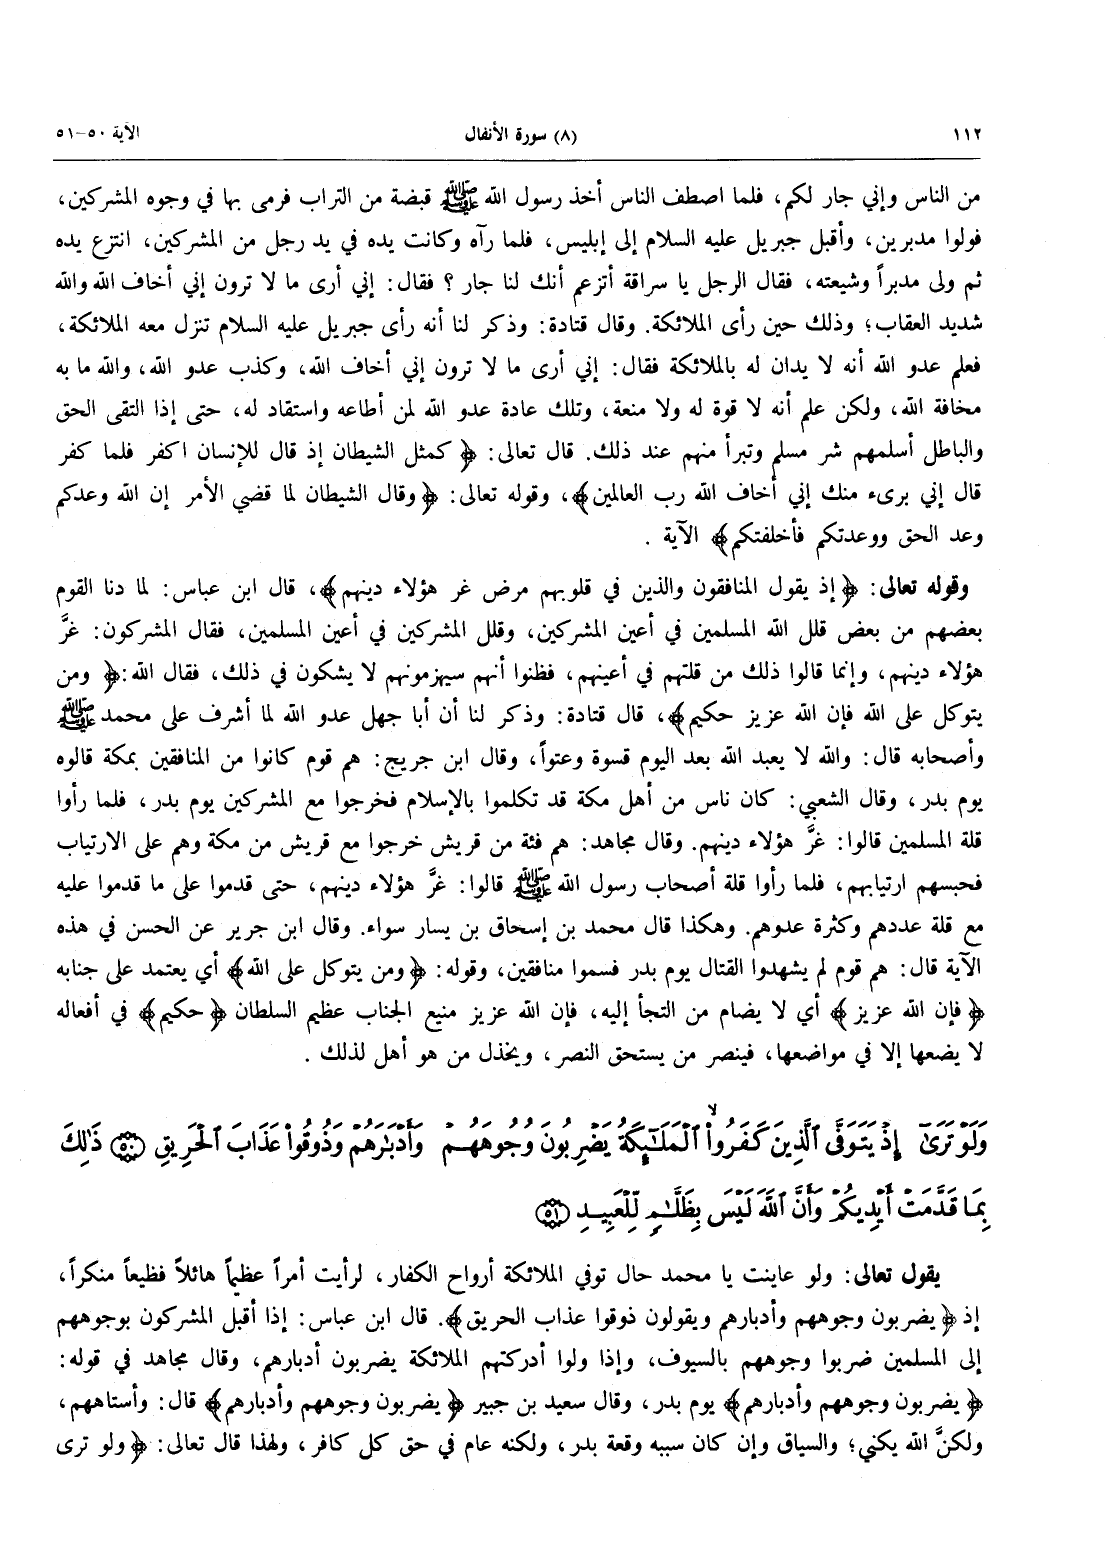 ١١٢
(٨) سورة الأنفال
الآية ٥٠-٥١
من الناس وإني جار لكم، فلما اصطف الناس أخذ رسول الله ﷺ قبضة من التراب فرمى بها في وجوه المشركين،
فولوا مدبرين، وأقبل جبريل عليه السلام إلى إبليس، فلما رآه وكانت يده في يد رجل من المشركين، انتزع يده
ثم ولى مدبراً وشيعته، فقال الرجل يا سراقة أتزعم أنك لنا جار ؟ فقال: إني أرى ما لا ترون إني أخاف الله والله
شديد العقاب؛ وذلك حين رأى الملائكة. وقال قتادة: وذكر لنا أنه رأى جبريل عليه السلام تنزل معه الملائكة،
فعلم عدو الله أنه لا يدان له بالملائكة فقال: إني أرى ما لا ترون إني أخاف الله، وكذب عدو الله، والله ما به
مخافة الله، ولكن علم أنه لا قوة له ولا منعة، وتلك عادة عدو الله لمن أطاعه واستقاد له، حتى إذا التقى الحق
والباطل أسلمهم شر مسلم وتبرأ منهم عند ذلك. قال تعالى: ﴿ كمثل الشيطان إذ قال للإنسان اكفر فلما كفر
قال إني برىء منك إني أخاف الله رب العالمين﴾، وقوله تعالى: ﴿وقال الشيطان لما قضي الأمر إن الله وعدكم
وعد الحق ووعدتكم فأخلفتكم﴾ الآية .
وقوله تعالى: ﴿ إذ يقول المنافقون والذين في قلوبهم مرض غر هؤلاء دينهم﴾، قال ابن عباس: لما دنا القوم
بعضهم من بعض قلل الله المسلمين في أعين المشركين، وقلل المشركين في أعين المسلمين، فقال المشركون: غرَّ
هؤلاء دينهم، وإنما قالوا ذلك من قلتهم في أعينهم، فظنوا أنهم سيهزمونهم لا يشكون في ذلك، فقال الله:﴿ ومن
يتوكل على الله فإن الله عزيز حكيم﴾، قال قتادة: وذكر لنا أن أبا جهل عدو الله لما أشرف على محمد ﷺ
وأصحابه قال: والله لا يعبد الله بعد اليوم قسوة وعتواً، وقال ابن جريج: هم قوم كانوا من المنافقين بمكة قالوه
يوم بدر، وقال الشعبي: كان ناس من أهل مكة قد تكلموا بالإسلام فخرجوا مع المشركين يوم بدر، فلما رأوا
قلة المسلمين قالوا: غرَّ هؤلاء دينهم. وقال مجاهد: هم فئة من قريش خرجوا مع قريش من مكة وهم على الارتياب
فحبسهم ارتيابهم، فلما رأوا قلة أصحاب رسول الله ﷺ قالوا: غرَّ هؤلاء دينهم، حتى قدموا على ما قدموا عليه
مع قلة عددهم وكثرة عدوهم. وهكذا قال محمد بن إسحاق بن يسار سواء. وقال ابن جرير عن الحسن في هذه
الآية قال: هم قوم لم يشهدوا القتال يوم بدر فسموا منافقين، وقوله: ﴿ومن يتوكل على الله﴾ أي يعتمد على جنابه
﴿ فإن الله عزيز ﴾ أي لا يضام من التجأ إليه، فإن الله عزيز منيع الجناب عظيم السلطان ﴿حكيم﴾ في أفعاله
لا يضعها إلا في مواضعها، فينصر من يستحق النصر، ويخذل من هو أهل لذلك .
وَلَوْ تَرَىٰٓ إِذْ يَتَوَفَّى ٱلَّذِينَ كَفَرُوا۟ ۙ ٱلْمَلَـٰٓئِكَةُ يَضْرِبُونَ وُجُوهَهُمْ وَأَدْبَـٰرَهُمْ وَذُوقُوا۟ عَذَابَ ٱلْحَرِيقِ ۝٥٠ ذَٰلِكَ
بِمَا قَدَّمَتْ أَيْدِيكُمْ وَأَنَّ ٱللَّهَ لَيْسَ بِظَلَّـٰمٍ لِّلْعَبِيدِ ۝٥١
يقول تعالى: ولو عاينت يا محمد حال توفي الملائكة أرواح الكفار، لرأيت أمراً عظيماً هائلاً فظيعاً منكراً،
إذ ﴿ يضربون وجوههم وأدبارهم ويقولون ذوقوا عذاب الحريق﴾. قال ابن عباس: إذا أقبل المشركون بوجوههم
إلى المسلمين ضربوا وجوههم بالسيوف، وإذا ولوا أدركتهم الملائكة يضربون أدبارهم، وقال مجاهد في قوله:
﴿ يضربون وجوههم وأدبارهم﴾ يوم بدر، وقال سعيد بن جبير ﴿ يضربون وجوههم وأدبارهم﴾ قال: وأستاههم،
ولكنَّ الله يكني؛ والسياق وإن كان سببه وقعة بدر، ولكنه عام في حق كل كافر، ولهذا قال تعالى: ﴿ ولو ترى